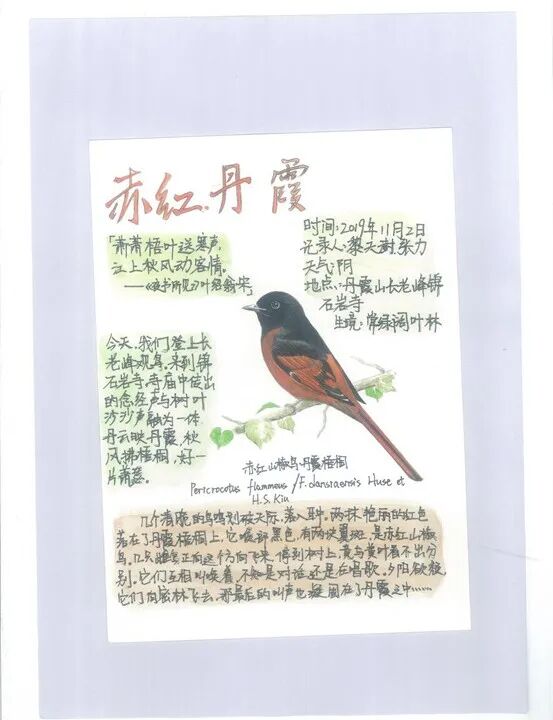 赤红丹霞
「萧萧梧叶送寒声,
江上秋风动客情。
——《夜书所见》叶绍翁 宋
时间:2019年11月2日
记录人:黎天 张力
天气:阴
地点:丹霞山长老峰锦
石岩寺
生境:常绿阔叶林
今天,我们登上长
老峰观鸟,来到锦
石岩寺,寺庙中传出
的念经声与树叶
沙沙声融为一体,
丹云映丹霞,秋
风拂梧桐,好一
片萧瑟。
赤红山椒鸟、丹霞梧桐
Pericrocotus flammeus / F. danxiaensis Huse et
H.S. Kiu
几个清脆的鸟鸣划破天际,落入耳中。两抹艳丽的红色
落在了丹霞梧桐上,它喉部黑色,有两块翼斑,是赤红山椒
鸟,几只雌鸟正向这个方向飞来,停到树上,黄与黄叶看不出分
别。它们互相叫唤着,不知是对话还是在唱歌。夕阳欲颓,
它们向密林飞去,那最后的叫声也凝固在了丹霞之中……